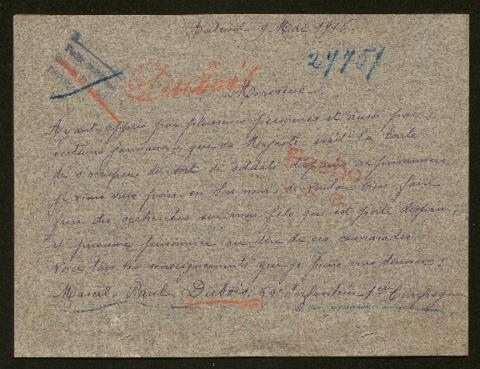 9 Mai 1915
27751
Dubois
Monsieur
Ayant appris par plusieurs personnes et aussi par
certains journaux que sa Majesté avait la bonté
de s'occuper du sort de soldats disparus ou prisonniers
je viens vous prier en de vouloir bien faire
faire des recherches sur mon fils qui est porté disparu,
et présumé prisonnier au dire de ses camarades
Voici les renseignements que je puis vous donner:
Marcel Paul Dubois, 59e Infanterie 1ère Compagnie